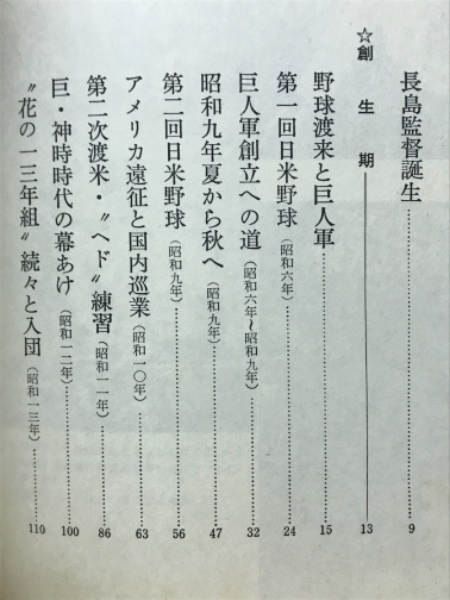 長島監督誕生……………9
☆創生期――――――13
野球渡来と巨人軍……………15
第一回日米野球(昭和六年)……………24
巨人軍創立への道(昭和六年〜昭和九年)……………32
昭和九年夏から秋へ(昭和九年)……………47
第二回日米野球(昭和九年)……………56
アメリカ遠征と国内巡業(昭和一〇年)……………63
第二次渡米・〝ヘド〟練習(昭和一一年)……………86
巨・神時時代の幕あけ(昭和一二年)……………100
〝花の一三年組〟続々と入団(昭和一三年)……………110